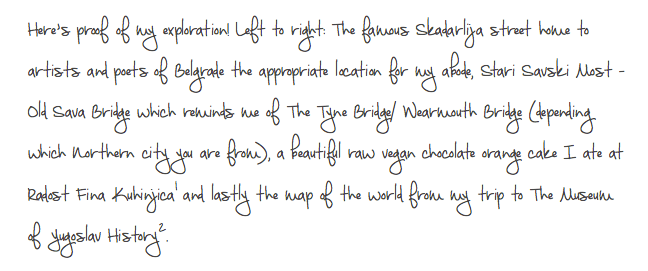 Here's proof of my exploration! Left to right: The famous Skadarlija street home to
artists and poets of Belgrade the appropriate location for my abode, Stari Savski Most -
Old Sava Bridge which reminds me of The Tyne Bridge/ Wearmouth Bridge (depending
which Northern city you are from), a beautiful raw vegan chocolate orange cake I ate at
Radost Fina Kuhinjica¹ and lastly the map of the world from my trip to The Museum
of Yugoslav History².